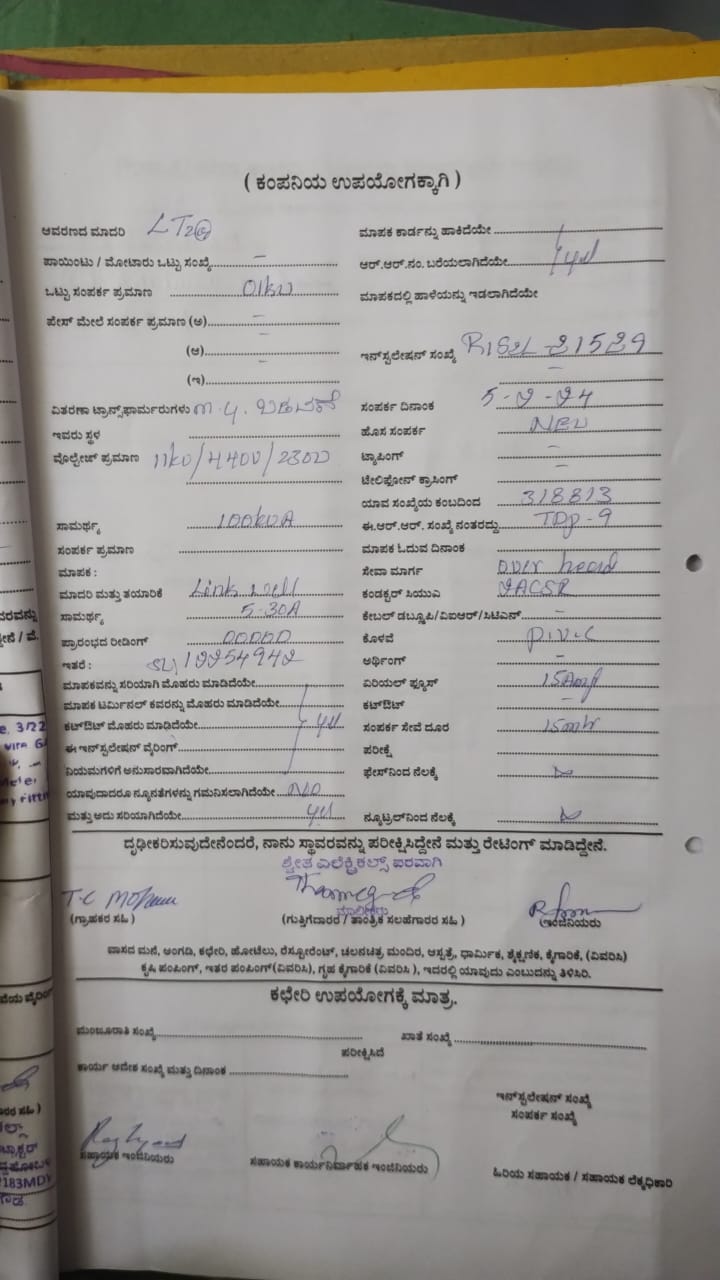 ( ಕಂಪನಿಯ ಉಪಯೋಗಕ್ಕಾಗಿ )
ಆವರಣದ ಮಾದರಿ LT2@ ಮಾಪಕ ಕಾರ್ಡನ್ನು ಹಾಕಿದೆಯೇ
ಪಾಯಿಂಟು / ಮೋಟಾರು ಒಟ್ಟು ಸಂಖ್ಯೆ – ಆರ್.ಆರ್.ನಂ. ಬರೆಯಲಾಗಿದೆಯೇ
ಒಟ್ಟು ಸಂಪರ್ಕ ಪ್ರಮಾಣ 01kw ಮಾಪಕದಲ್ಲಿ ಹಾಳೆಯನ್ನು ಇಡಲಾಗಿದೆಯೇ
ಫೇಸ್ ಮೇಲೆ ಸಂಪರ್ಕ ಪ್ರಮಾಣ (ಅ) –
(ಆ) – ಇನ್‌ಸ್ಟಲೇಷನ್ ಸಂಖ್ಯೆ 21529
(ಇ) – –
ವಿತರಣಾ ಟ್ರಾನ್ಸ್‌ಫಾರ್ಮರುಗಳು ಸಂಪರ್ಕ ದಿನಾಂಕ 5-2-24
ಇವರು ಸ್ಥಳ ಹೊಸ ಸಂಪರ್ಕ NEW
ವೋಲ್ಟೇಜ್ ಪ್ರಮಾಣ 11kv/440v/230v ಟ್ಯಾಪಿಂಗ್ –
ಟೆಲಿಫೋನ್ ಕ್ರಾಸಿಂಗ್ –
ಯಾವ ಸಂಖ್ಯೆಯ ಕಂಬದಿಂದ 318813
ಸಾಮರ್ಥ್ಯ 100kVA ಈ.ಆರ್.ಆರ್. ಸಂಖ್ಯೆ ನಂತರದ್ದು TDp-9
ಸಂಪರ್ಕ ಪ್ರಮಾಣ ಮಾಪಕ ಓದುವ ದಿನಾಂಕ
ಮಾಪಕ : ಸೇವಾ ಮಾರ್ಗ over head
ಮಾದರಿ ಮತ್ತು ತಯಾರಿಕೆ Link well ಕಂಡಕ್ಟರ್ ಸಿಯುವಿ
ಸಾಮರ್ಥ್ಯ 5-30A ಕೇಬಲ್ ಡಬ್ಲ್ಯೂಪಿ/ವಿಐಆರ್/ಸಿಟಿಎನ್ –
ಪ್ರಾರಂಭದ ರೀಡಿಂಗ್ 00000 ಕೊಳವೆ P.V.C
ಇತರೆ : ಅರ್ಥಿಂಗ್ –
ಮಾಪಕವನ್ನು ಸರಿಯಾಗಿ ಮೊಹರು ಮಾಡಿದೆಯೇ ಏರಿಯಲ್ ಫ್ಯೂಸ್ 15Amp
ಮಾಪಕ ಟರ್ಮಿನಲ್ ಕವರನ್ನು ಮೊಹರು ಮಾಡಿದೆಯೇ ಕಟ್‌ಔಟ್ –
ಕಟ್‌ಔಟ್ ಮೊಹರು ಮಾಡಿದೆಯೇ yes ಸಂಪರ್ಕ ಸೇವೆ ದೂರ 15mtr
ಈ ಇನ್‌ಸ್ಟಲೇಷನ್ ವೈರಿಂಗ್ ಪರೀಕ್ಷೆ
ನಿಯಮಗಳಿಗೆ ಅನುಸಾರವಾಗಿದೆಯೇ ಫೇಸ್‌ನಿಂದ ನೆಲಕ್ಕೆ
ಯಾವುದಾದರೂ ನ್ಯೂನತೆಗಳನ್ನು ಗಮನಿಸಲಾಗಿದೆಯೇ NO
ಮತ್ತು ಅದು ಸರಿಯಾಗಿದೆಯೇ yes ನ್ಯೂಟ್ರಲ್‌ನಿಂದ ನೆಲಕ್ಕೆ
ದೃಢೀಕರಿಸುವುದೇನೆಂದರೆ, ನಾನು ಸ್ಥಾವರವನ್ನು ಪರೀಕ್ಷಿಸಿದ್ದೇನೆ ಮತ್ತು ರೇಟಿಂಗ್ ಮಾಡಿದ್ದೇನೆ.
ಶ್ವೇತ ಎಲೆಕ್ಟ್ರಿಕಲ್ಸ್ ಪರವಾಗಿ
ಮಾಲೀಕರು
(ಗ್ರಾಹಕರ ಸಹಿ ) (ಗುತ್ತಿಗೆದಾರರ / ತಾಂತ್ರಿಕ ಸಲಹೆಗಾರರ ಸಹಿ ) (ಇಂಜಿನಿಯರು
ವಾಸದ ಮನೆ, ಅಂಗಡಿ, ಕಛೇರಿ, ಹೋಟೆಲು, ರೆಸ್ಟೋರೆಂಟ್, ಚಲನಚಿತ್ರ ಮಂದಿರ, ಆಸ್ಪತ್ರೆ, ಧಾರ್ಮಿಕ, ಶೈಕ್ಷಣಿಕ, ಕೈಗಾರಿಕೆ, (ವಿವರಿಸಿ)
ಕೃಷಿ ಪಂಪಿಂಗ್, ಇತರ ಪಂಪಿಂಗ್(ವಿವರಿಸಿ), ಗೃಹ ಕೈಗಾರಿಕೆ (ವಿವರಿಸಿ ), ಇದರಲ್ಲಿ ಯಾವುದು ಎಂಬುದನ್ನು ತಿಳಿಸಿರಿ.
ಕಛೇರಿ ಉಪಯೋಗಕ್ಕೆ ಮಾತ್ರ.
ಮಂಜೂರಾತಿ ಸಂಖ್ಯೆ ಖಾತೆ ಸಂಖ್ಯೆ
ಪರೀಕ್ಷಿಸಿದೆ
ಕಾರ್ಯ ಆದೇಶ ಸಂಖ್ಯೆ ಮತ್ತು ದಿನಾಂಕ
ಇನ್‌ಸ್ಟಲೇಷನ್ ಸಂಖ್ಯೆ
ಸಂಪರ್ಕ ಸಂಖ್ಯೆ
ಸಹಾಯಕ ಇಂಜಿನಿಯರು ಸಹಾಯಕ ಕಾರ್ಯನಿರ್ವಾಹಕ ಇಂಜಿನಿಯರು ಹಿರಿಯ ಸಹಾಯಕ / ಸಹಾಯಕ ಲೆಕ್ಕಾಧಿಕಾರಿ